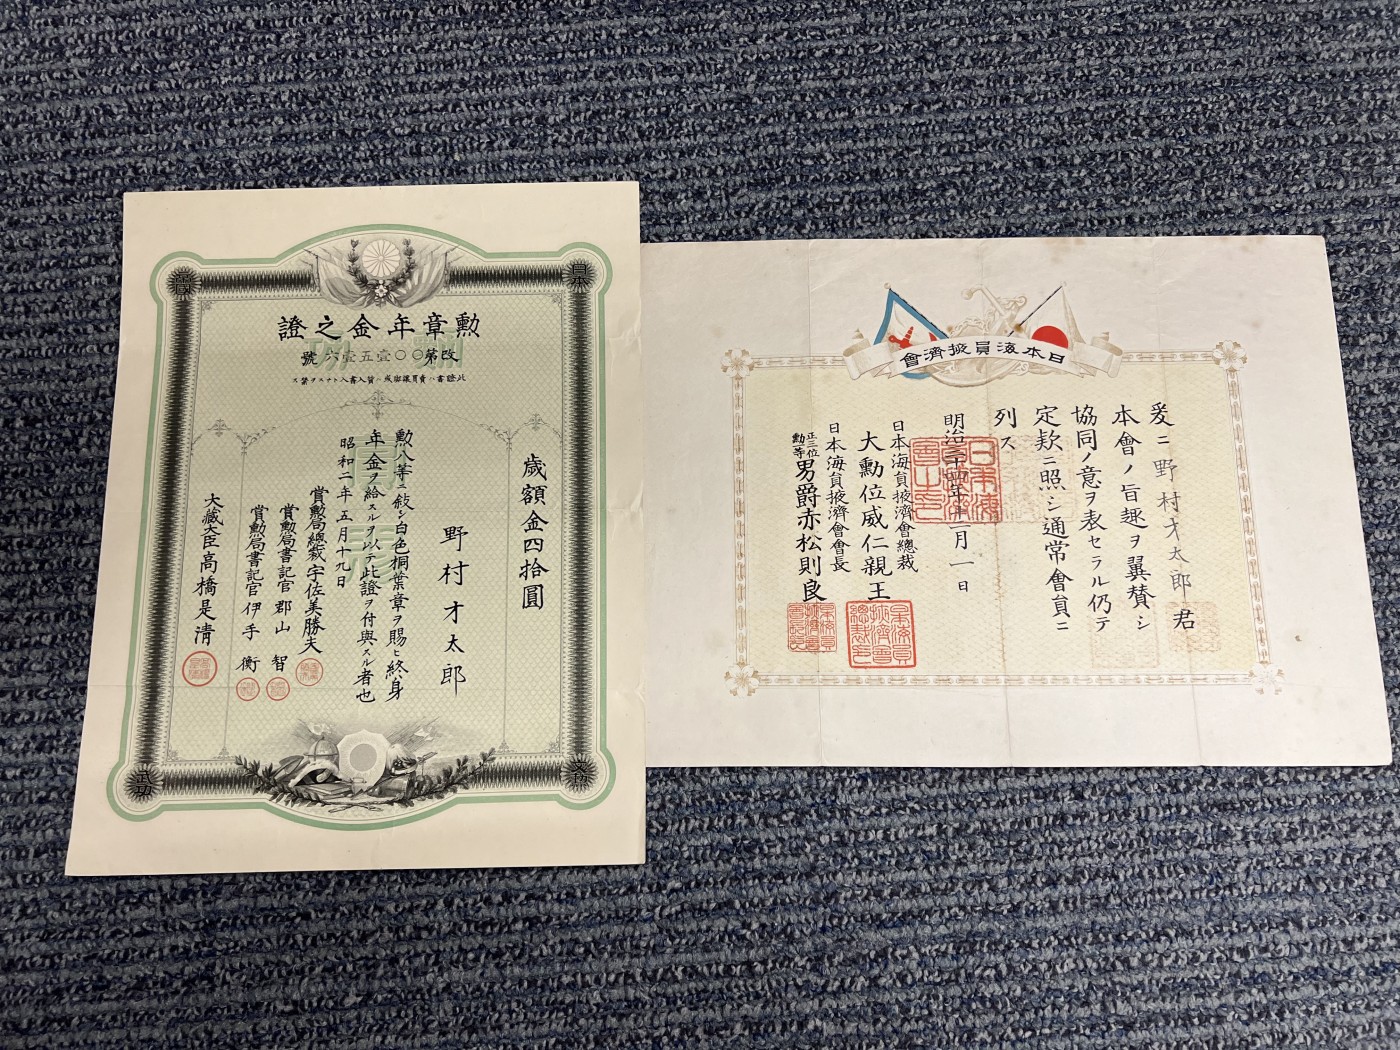 勲章年金之證
改第〇〇壹五壹六號
此證書ハ賣買讓與或ハ質入書入トナスヲ禁ス
歳額金四拾圓
野村才太郎
勲八等ニ敍シ白色桐葉章ヲ賜ヒ終身
年金ヲ給スルヲ以テ此證ヲ付與スル者也
昭和二年五月十九日
賞勲局總裁宇佐美勝夫
賞勲局書記官郡山智
賞勲局書記官伊手衡
大藏大臣高橋是清
日本
帝國
武功
文功
日本海員掖濟會
爰ニ野村才太郎君
本會ノ旨趣ヲ翼賛シ
協同ノ意ヲ表セラル仍テ
定款ニ照シ通常會員ニ
列ス
明治三十四年十二月一日
日本海員掖濟會總裁
大勲位威仁親王
日本海員掖濟會會長
正三位
勲一等
男爵赤松則良